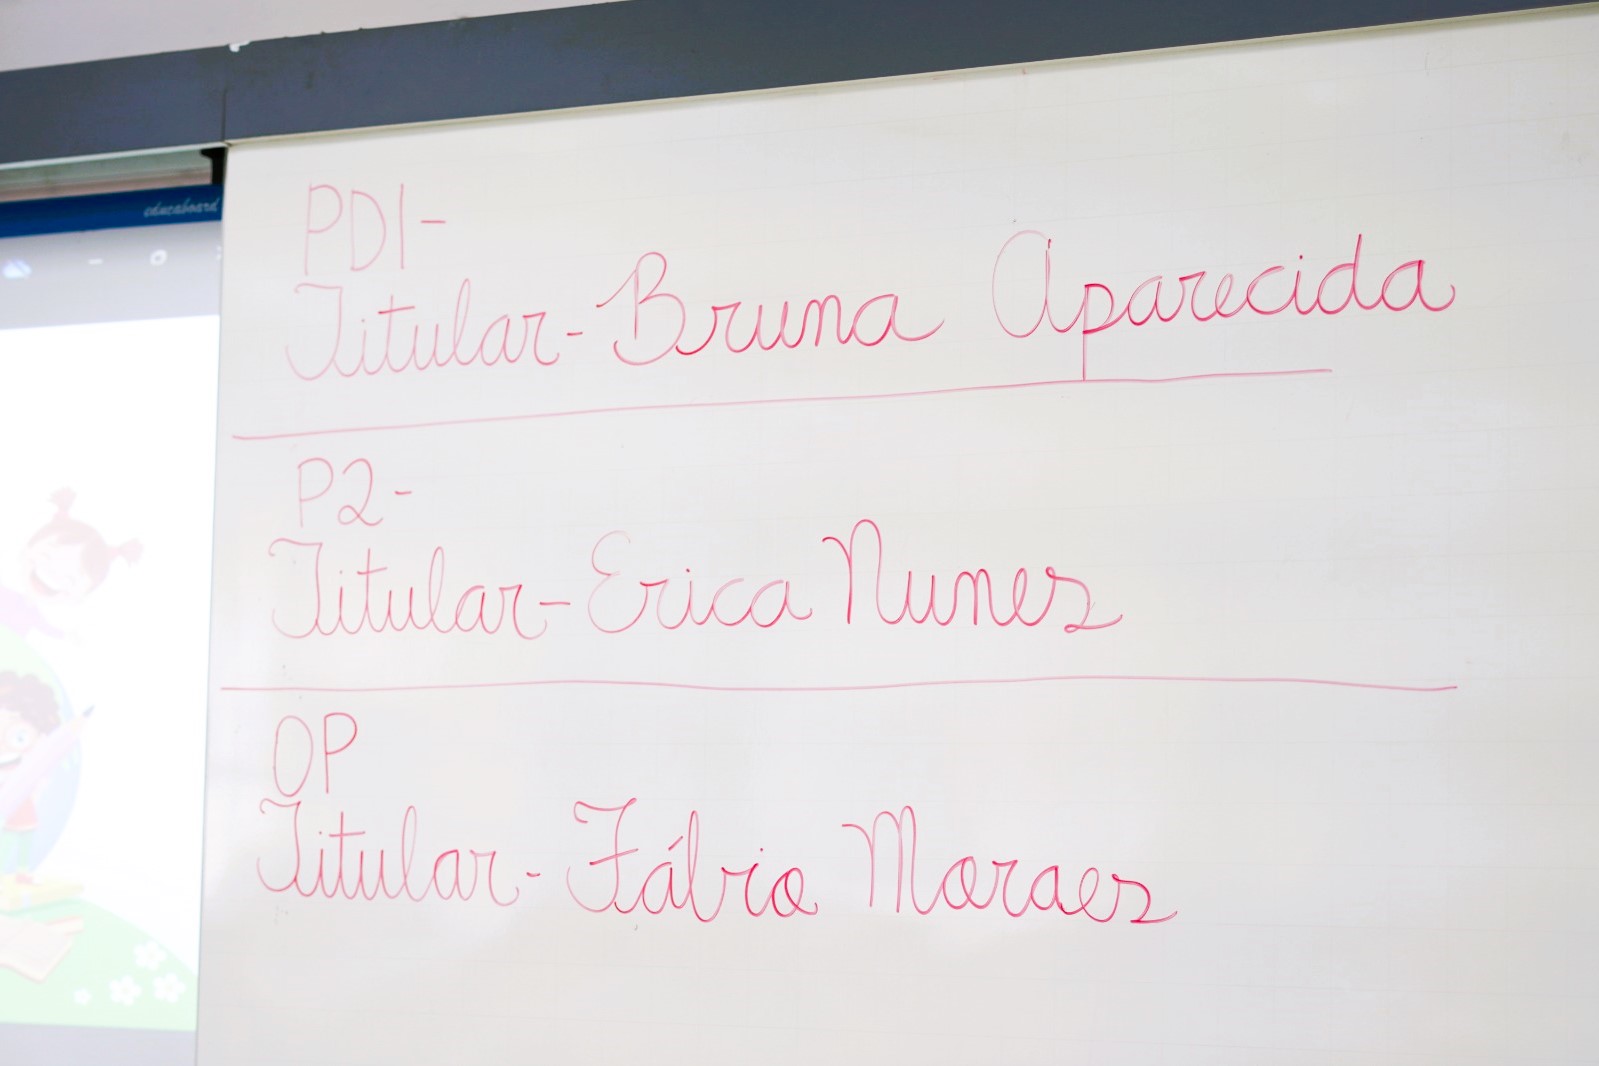 educaboard
PDI-
Titular-Bruna Aparecida
P2-
Titular-Erica Nunes
OP
Titular-Fábio Moraes